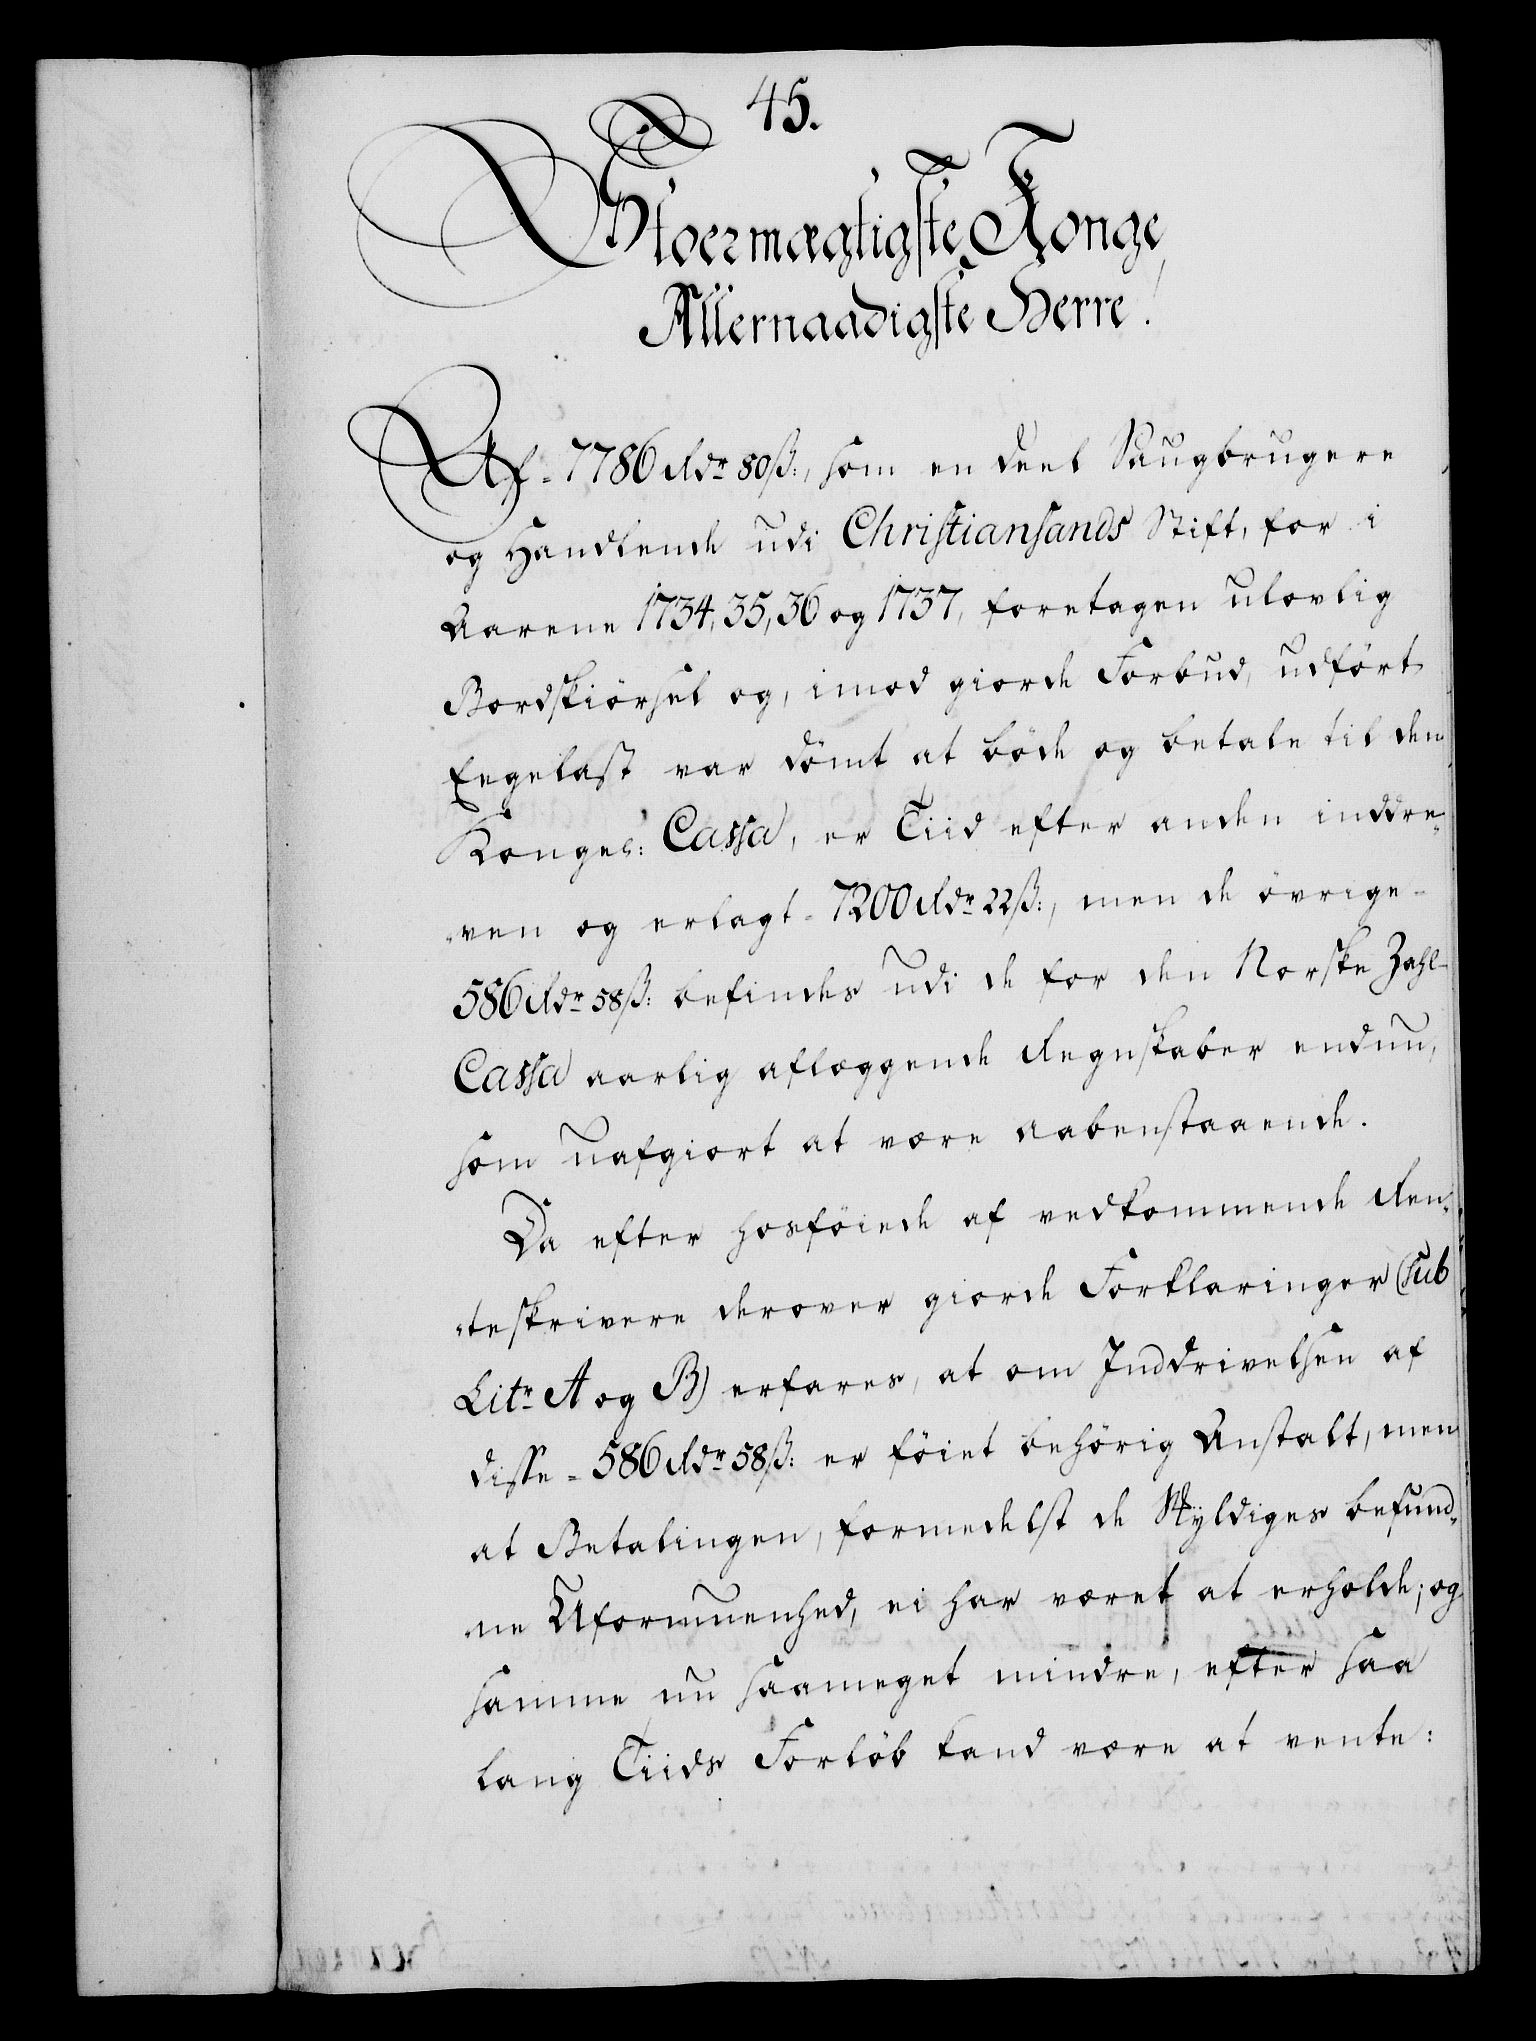 45.
Stoermægtigste Konge,
Allernaadigste Herre!
Af 7786 Rdr 80ß:, som en deel Saugbrugere
og Handlende udi Christiansands Stift, for i
Aarene 1734, 35, 36 og 1737, foretagen ulovlig
Bordskiörsel og, imod giorde Forbud, udfört
Eegelast var dömt at böde og betale til den
Kongel: Cassa, er Tiid efter anden inddre-
ven og erlagt 7200 Rdr 22ß:, men de övrige
586 Rdr 58ß: befindes udi de for den Norske Zahl
Cassa aarlig aflæggende Regnskaber endnu,
som uafgiort at være aabenstaaende.
Da efter hosföiede af vedkommende Ren-
teskrivere derover giorde Forklaringer (sub
Litr A og B) erfares, at om Inddrivelsen af
disse 586 Rdr 58ß: er föiet behörig Anstalt, men
at Betalingen, formedelst de Skyldiges befund-
ne Uformuenhed, ei har været at erholde; og
samme nu saameget mindre, efter saa
lang Tiids Forlöb kand være at vente: